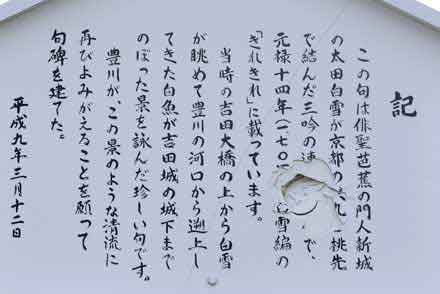 記
この句は俳聖芭蕉の門人新城
の太田白雪が京都の 桃先
で結んだ三吟の連 で、
元禄十四年(一七〇 白雪編の
「きれぎれ」に載っています。
当時の吉田大橋の上から白雪
が眺めて豊川の河口から遡上し
てきた白魚が吉田城の城下まで
のぼった景を詠んだ珍しい句です。
豊川が、この景のような清流に
再びよみがえることを願って
句碑を建てた。
平成九年三月十二日